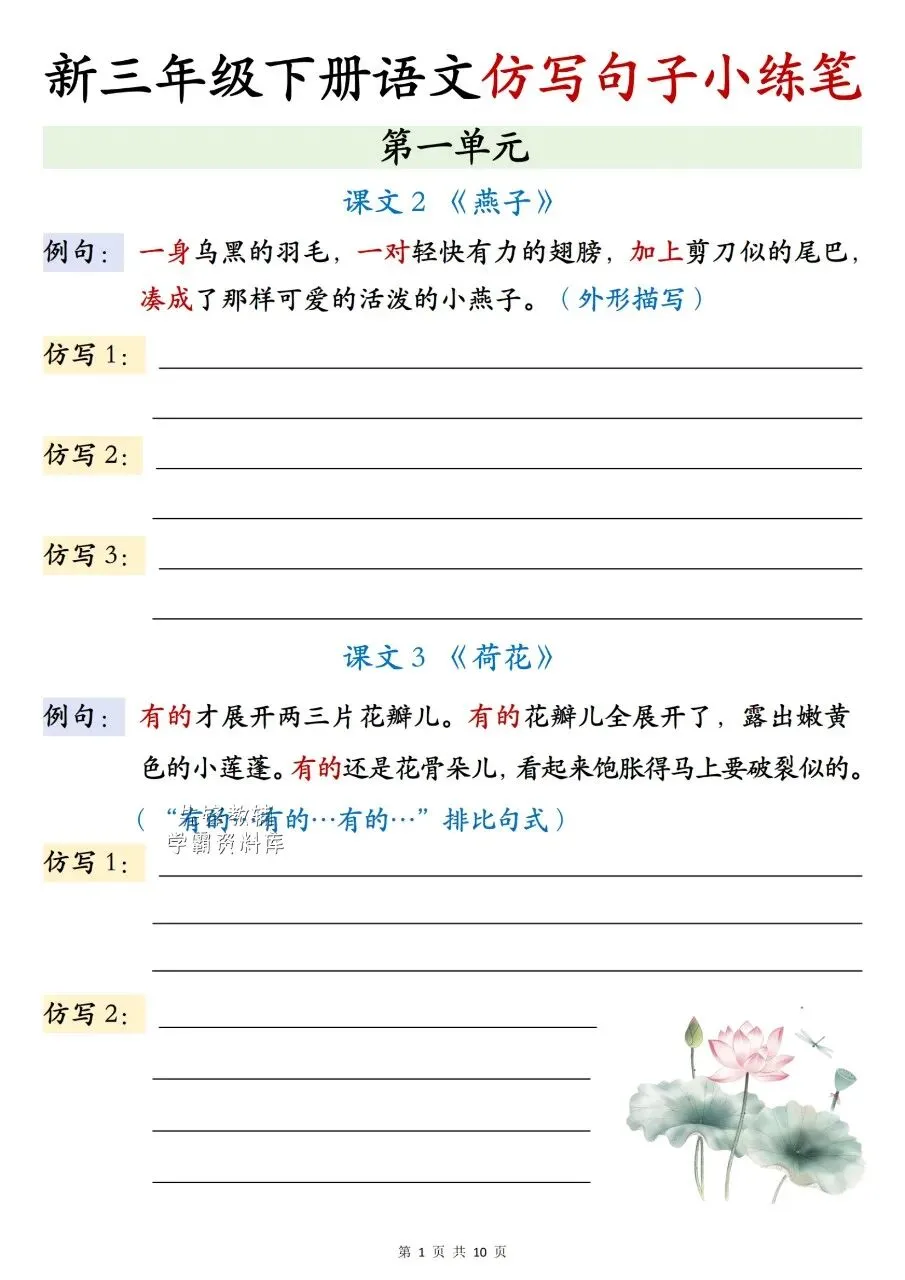 新三年级下册语文仿写句子小练笔
第一单元
课文2 《燕子》
例句： 一身乌黑的羽毛，一对轻快有力的翅膀，加上剪刀似的尾巴，
凑成了那样可爱的活泼的小燕子。（外形描写）
仿写1：
仿写2：
仿写3：
课文3 《荷花》
例句： 有的才展开两三片花瓣儿。有的花瓣儿全展开了，露出嫩黄
色的小莲蓬。有的还是花骨朵儿，看起来饱胀得马上要破裂似的。
（“有的…有的…有的…”排比句式）
学霸资料库
仿写1：
仿写2：
第 1 页 共 10 页